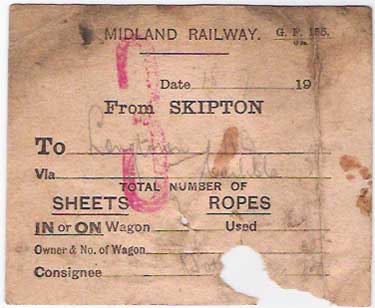 MIDLAND RAILWAY. G. F. 185.
3
Date 19
From SKIPTON
To
Via Carlisle
TOTAL NUMBER OF
SHEETS ROPES
IN or ON Wagon Used
Owner & No. of Wagon
Consignee